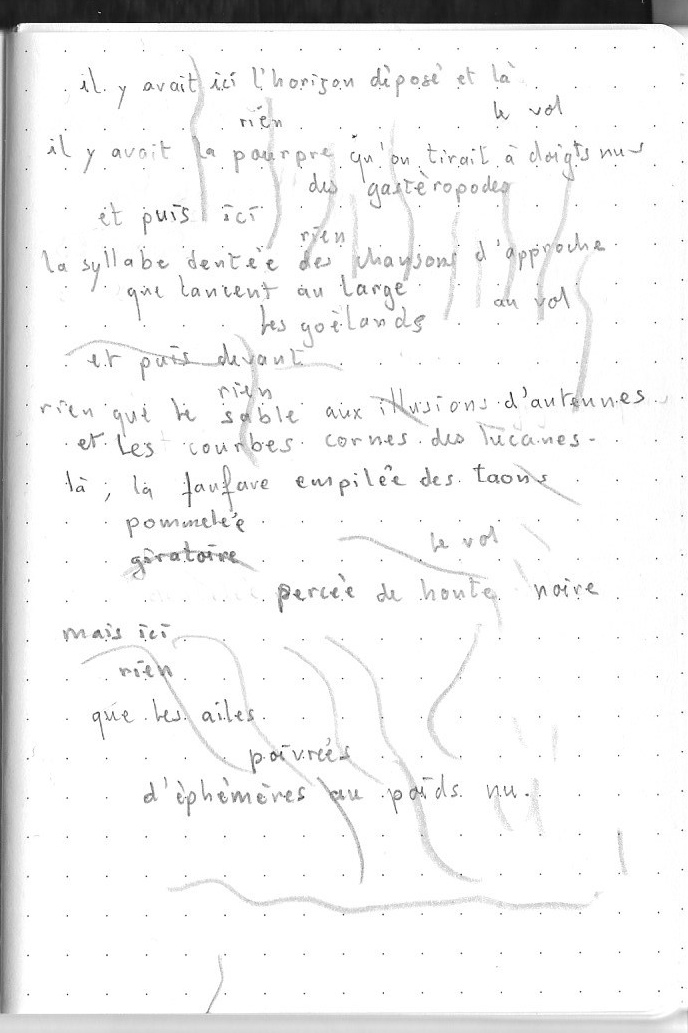 il y avait ici l'horizon déposé et là
rien
le vol
il y avait la pourpre qu'on tirait à doigts nus
des gastéropodes
et puis ici
rien
la syllabe dentée des chansons d'approche
que lancent au large
au vol
les goélands
et puis devant
rien
rien que le sable aux illusions d'antennes
et les courbes cornes des lucanes.
là ; la fanfare empilée des taons
pommelée
giratoire
le vol
percée de honte noire
mais ici
rien
que les ailes
poivrées
d'éphémères au poids nu.